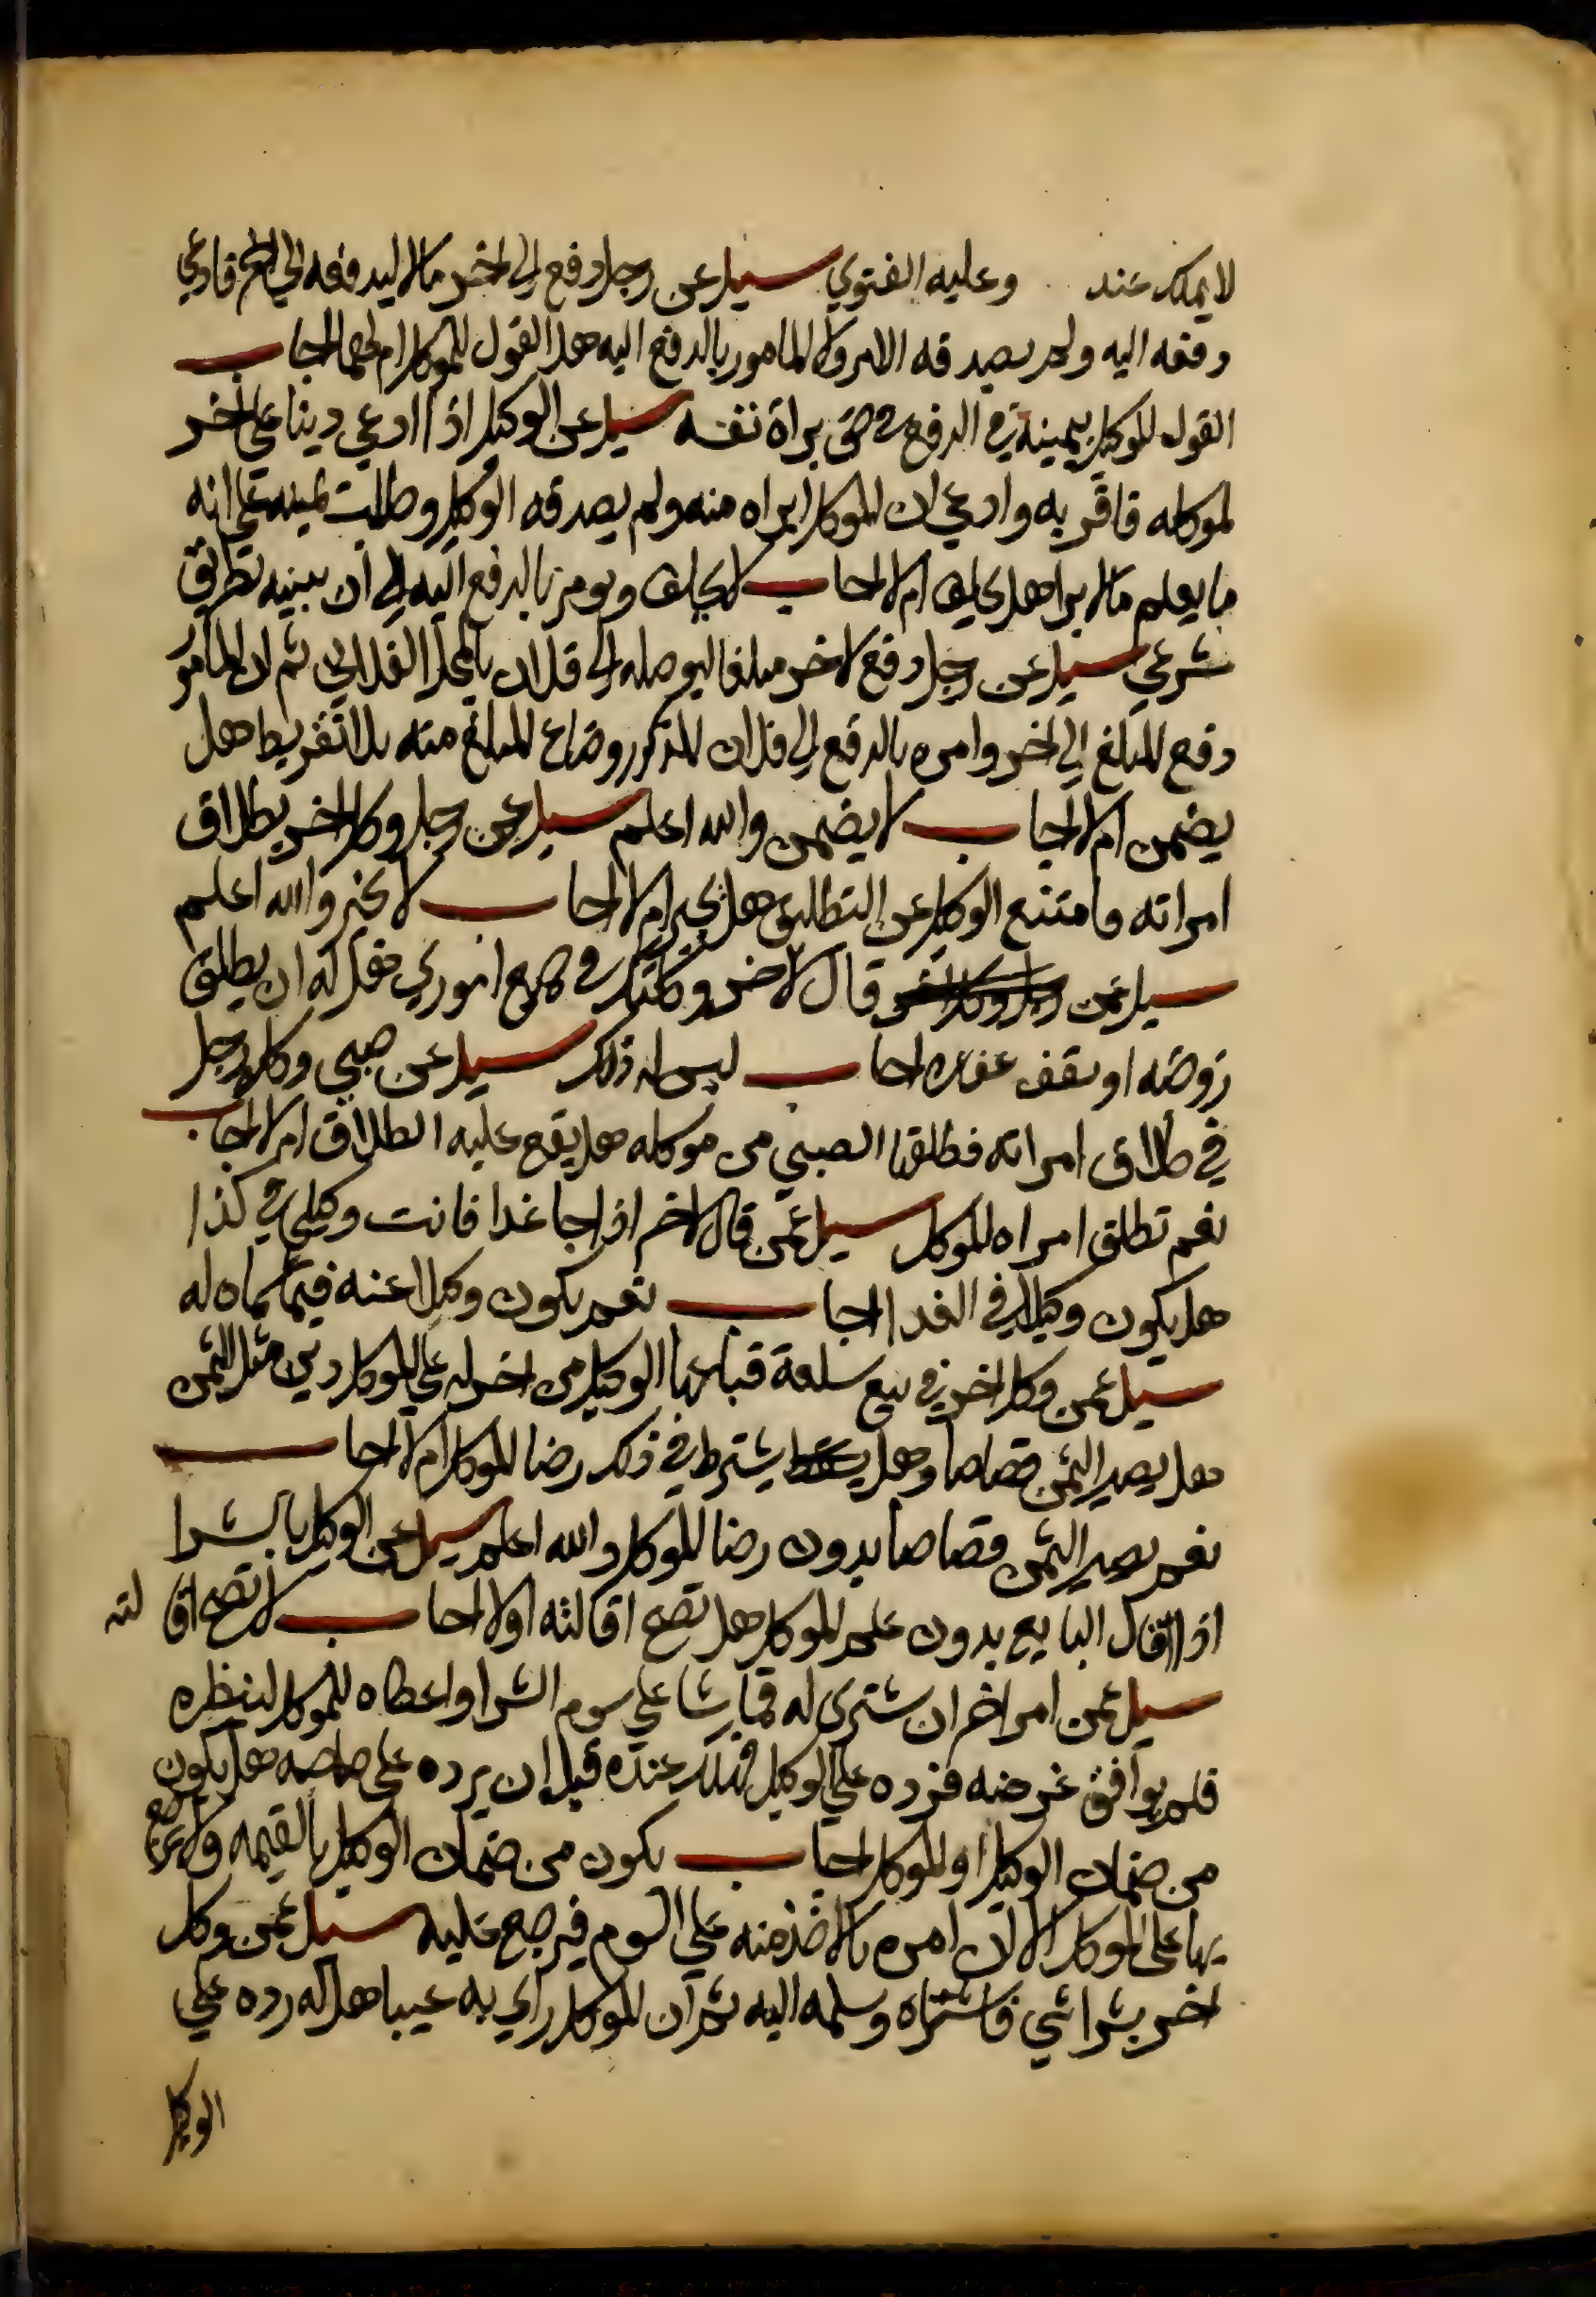 لا يملك عند وعليه الفتوي سيل عن رجل دفع الي اخر مالا ليدفعه الي فادعي
دفعه اليه ولم يصدقه الامر ولا المامور بالدفع اليه هل القول للموكل ام لهما اجاب
القول للوكيل بيمينه في الدفع في حق براة نفسه سيل عن الوكيل اذا ادعي دينا علي اخر
لموكله فاقر به وادعي ان الموكل ابراه منه ولم يصدقه الوكيل وطلب يمينه علي انه
ما يعلم بالابرا هل يحلف ام لا اجاب لا يحلف ويومر بالدفع اليه الي ان يبينه بطريق
شرعي سيل عن رجل دفع لاخر مبلغا ليوصله الي فلان بالمحل الفلاني ثم ان المامور
دفع المبلغ الي اخر وامره بالدفع الي فلان المذكور وضاع المبلغ منه بلا تفريط هل
يضمن ام لا اجاب لا يضمن والله اعلم سيل عن رجل وكل اخر بطلاق
امراته وامتنع الوكيل عن التطليق هل يجبر ام لا اجاب لا يجبر والله اعلم
سيل عمن قال لاخر وكلتك في جميع اموري فهل له ان يطلق
زوجته او يقف عقاره اجاب ليس له ذلك سيل عن صبي وكله رجل
في طلاق امراته فطلقها الصبي من موكله هل يقع عليه الطلاق ام لا اجاب
نعم تطلق امراه الموكل سيل عمن قال لاخر اذا جا غدا فانت وكيلي في كذا
هل يكون وكيلا في الغد اجاب نعم يكون وكيلا عنه فيما سماه له
سيل عمن وكل اخر في بيع سلعة فباعها الوكيل من اخر له علي الموكل دين مثل الثمن
هل يصير الثمن قصاصا وهل يشترط في ذلك رضا الموكل ام لا اجاب
نعم يصير الثمن قصاصا بدون رضا الموكل والله اعلم سيل عن الوكيل بالشرا
اذا اقال البايع بدون علم الموكل هل تصح اقالته اولا اجاب لا تصح اقا لته
سيل عمن امر اخر ان يشتري له قماشا علي سوم الشرا واعطاه للموكل لينظره
فلم يوافق غرضه فرده علي الوكيل فهلك عنده قبل ان يرده علي صاحبه هل يكون
من ضمان الوكيل او الموكل اجاب يكون من ضمان الوكيل بالقيمه ولا يرجع
بها علي الموكل الا ان امره بالاخذ منه علي السوم فيرجع عليه سيل عمن وكل
اخر بشرا شي فاشتراه وسلمه اليه ثم ان الموكل راي به عيبا هل له رده علي
الوكيل